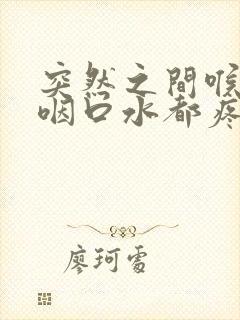 突然之間喉
咽口水都疼
廖珂雪